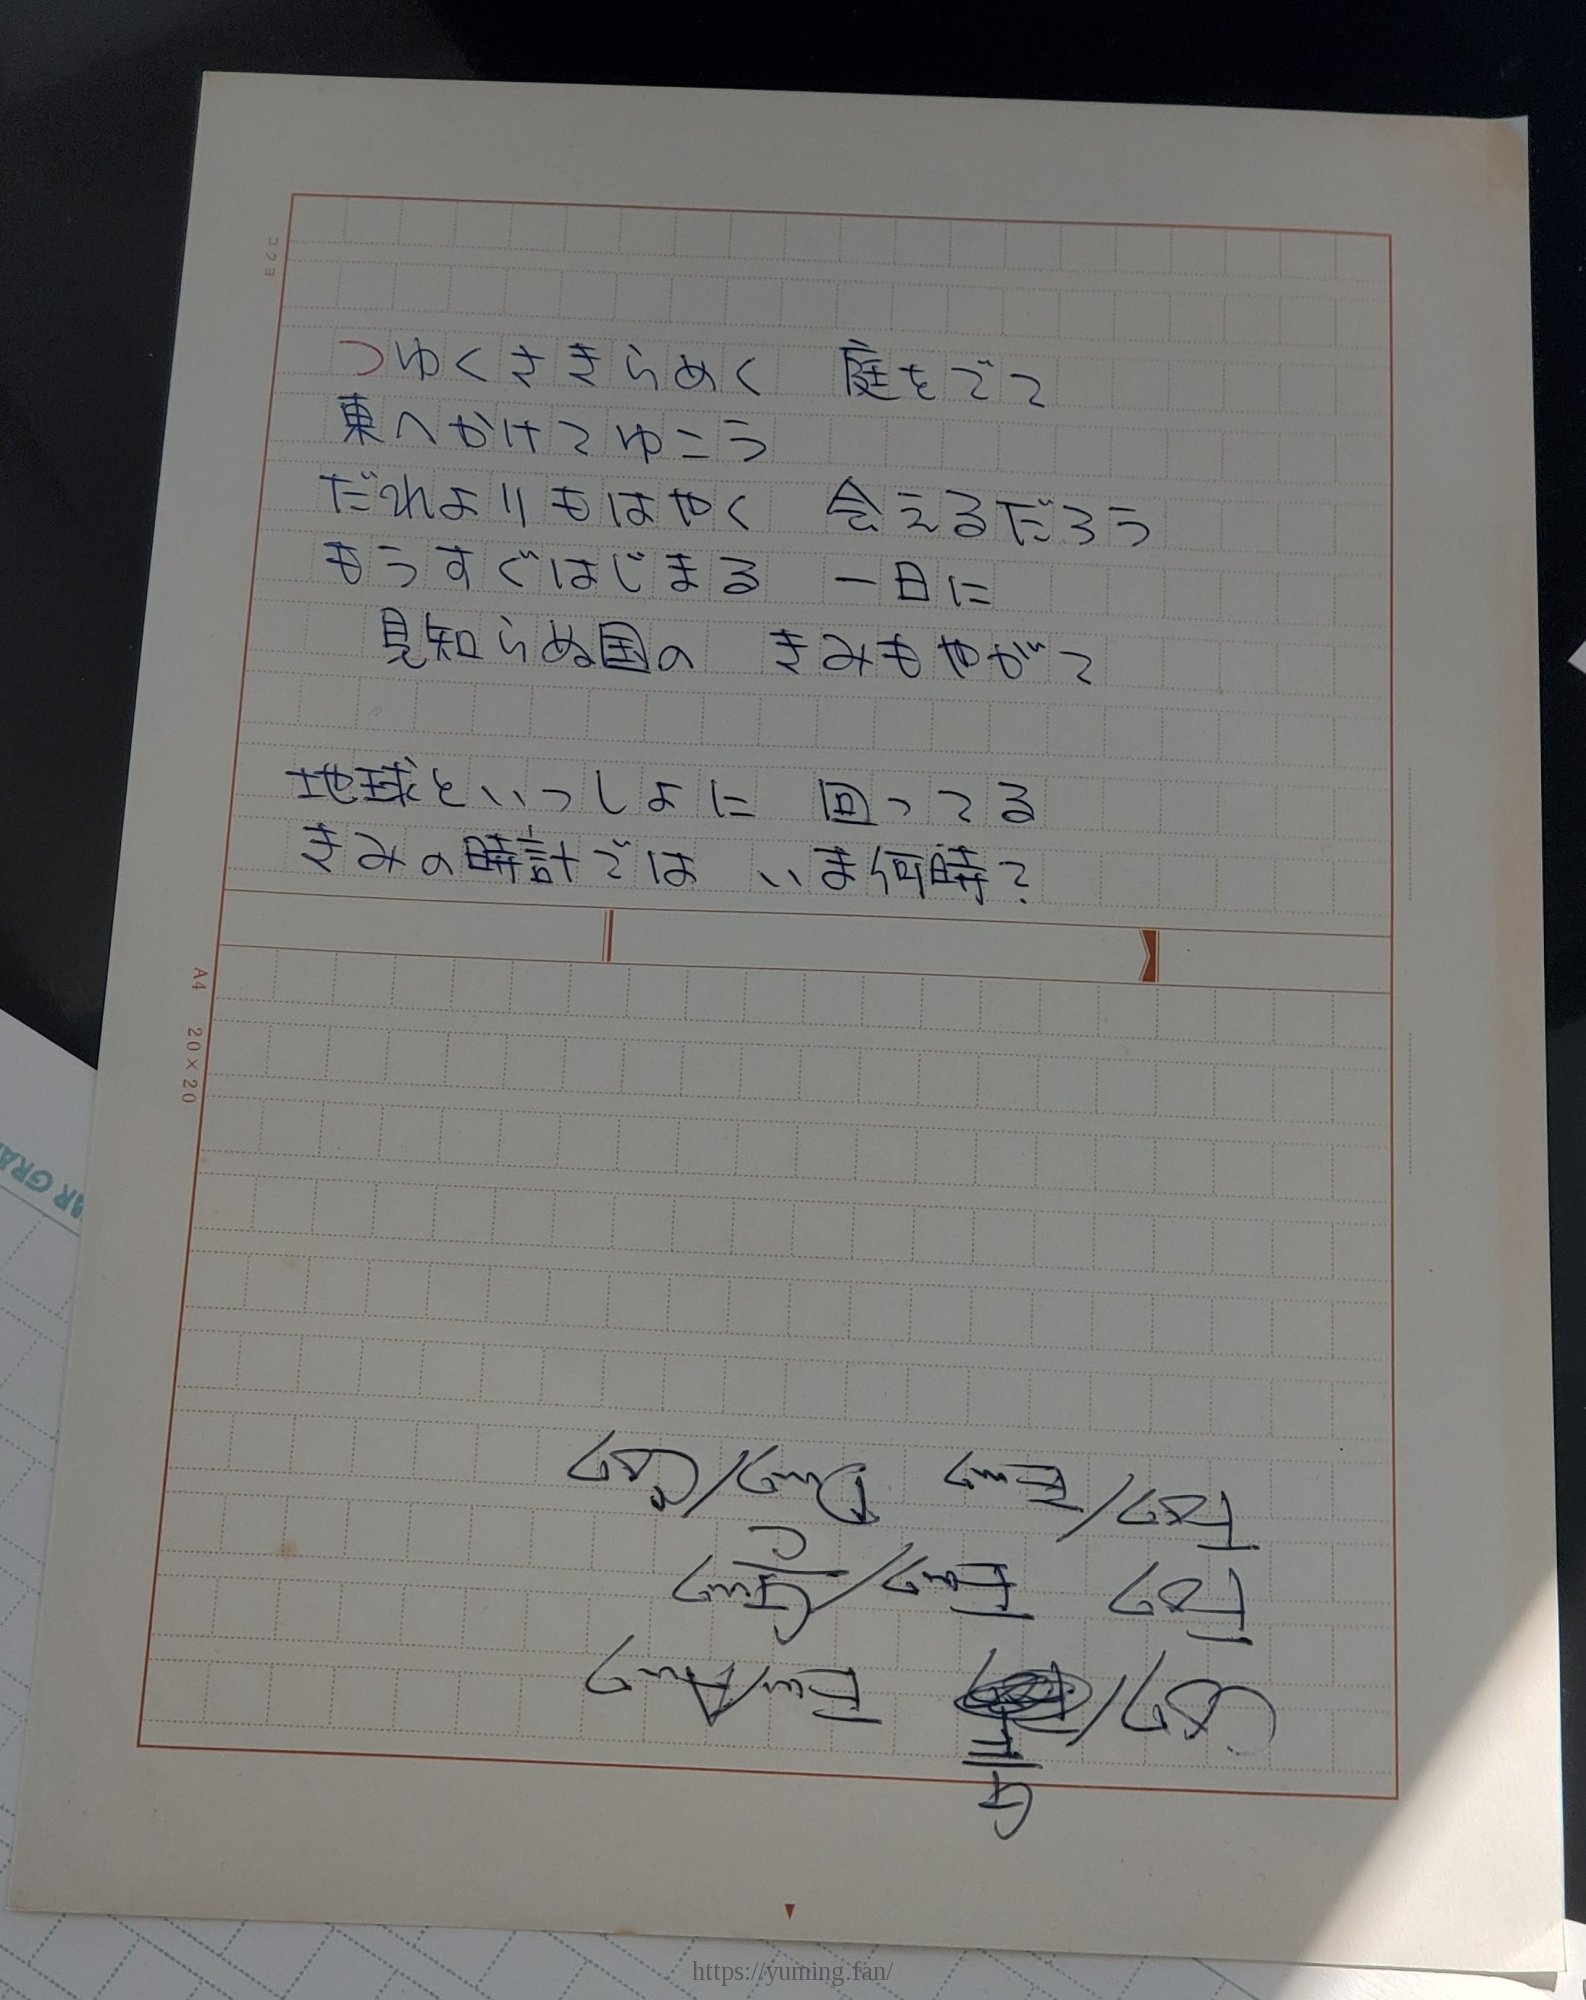 コクヨ
つゆくさきらめく　庭をでて
東へかけてゆこう
だれよりもはやく　会えるだろう
もうすぐはじまる　一日に
見知らぬ国の　きみもやがて
地球といっしょに　回ってる
きみの時計では　いま何時?
A4　20×20
Em7 Dm7
https://yuming.fan/